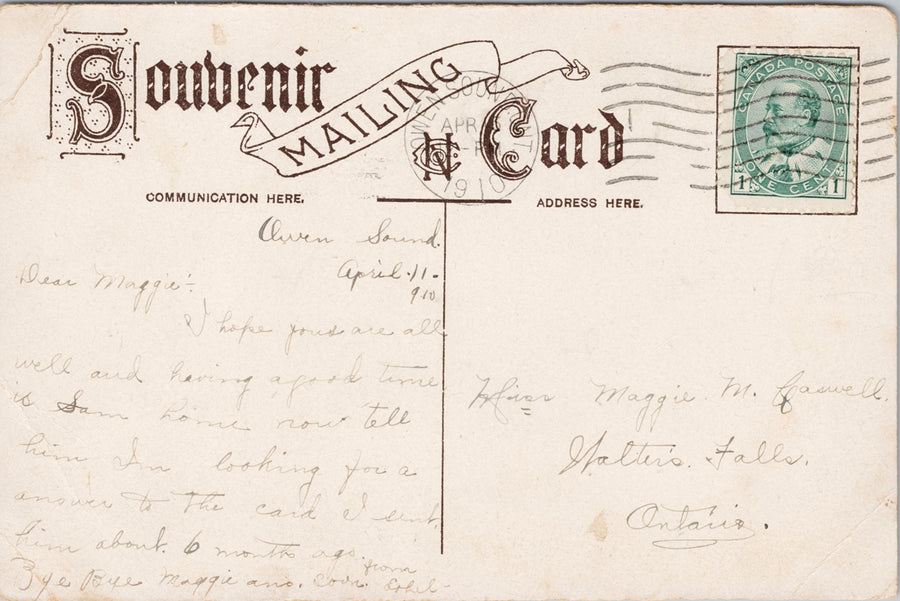 Souvenir
MAILING
Card
OWEN SOUND, ONT
APR
1910
CANADA POSTAGE
1 ONE CENT 1
COMMUNICATION HERE.
ADDRESS HERE.
Owen Sound.
April. 11 -
910
Dear Maggie:-
I hope yous are all
well and having a good time
is Sam home now tell
him Im looking for a
answer to the card I sent
him about. 6 months ago.
Bye Bye Maggie ans. soon. from
Ethel-
Miss Maggie. M. Caswell.
Walters. Falls.
Ontario.